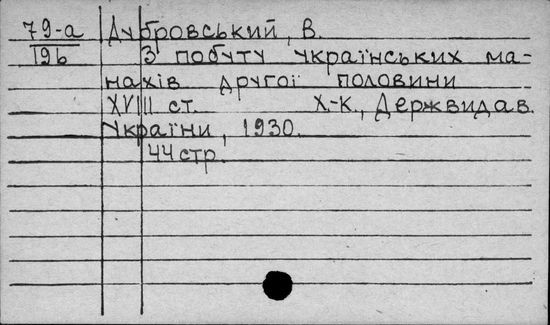 79-а Дубровський, В.
19б З побуту українських ма-
нахів другої половини
XVIII ст. Х-К., Держвидав.
України, 1930.
44 стр.